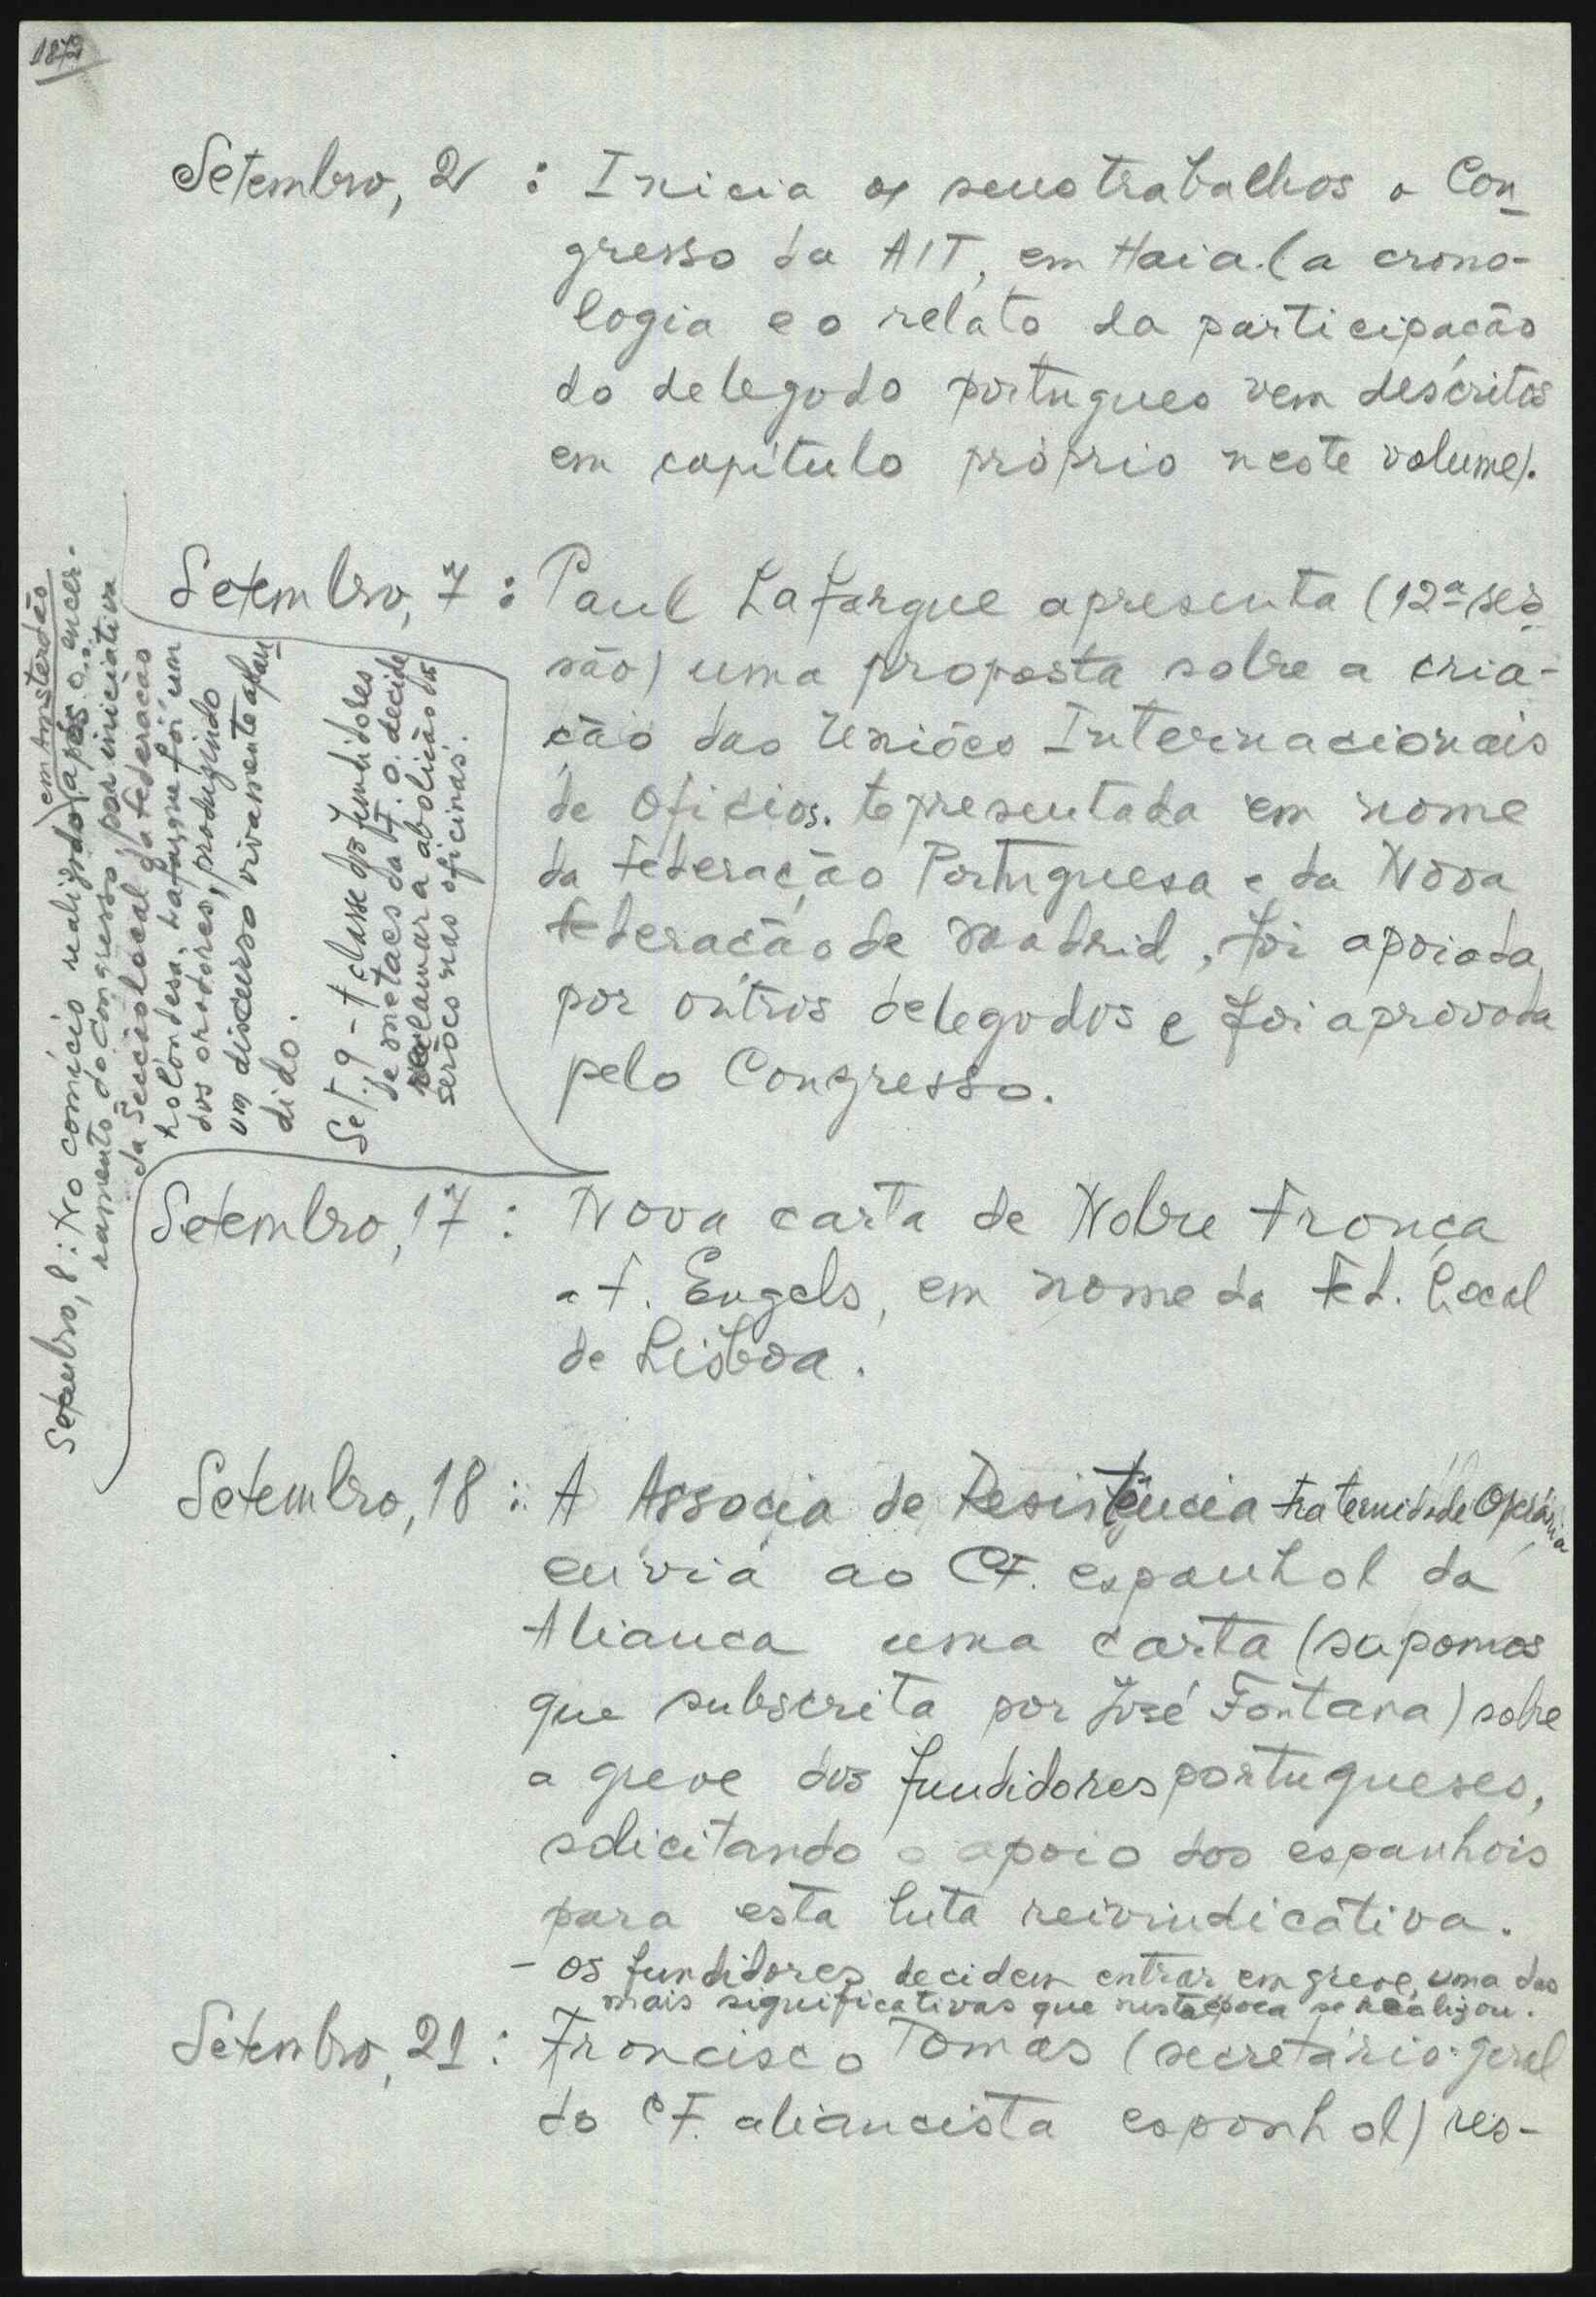 1872
Setembro, 2 : Inicia os seus trabalhos o Con-
gresso da AIT, em Haia. (a crono-
logia e o relato da participação
do delegado portugues vem descritos
em capítulo próprio neste volume).
Setembro, 7 : Paul Lafargue apresenta (12ª ses-
são) uma proposta sobre a cria-
ção das Uniões Internacionais
de Ofícios. Apresentada em nome
da Federação Portuguesa e da Nova
Federação de Madrid, foi apoiada
por outros delegados e foi aprovada
pelo Congresso.
Setembro, 8 : No comício realizado em Amsterdão após o encer-
ramento do Congresso, por iniciativa
da Secção local da Federação
holandesa, Lafargue foi um
dos oradores, produzindo
um discurso vivamente aplau-
dido.
Set., 9 - A classe dos fundidores
de metaes da F.O. decide
reclamar a abolição dos
serões nas oficinas.
Setembro, 17 : Nova carta de Nobre França
a F. Engels, em nome da Fed. Local
de Lisboa.
Setembro, 18 : A Associa de Resistência Fraternidade Operária
envia ao CF. espanhol da
Aliança uma carta (supomos
que subscrita por José Fontana) sobre
a greve dos fundidores portugueses,
solicitando o apoio dos espanhois
para esta luta reivindicativa.
- Os fundidores decidem entrar em greve, uma das
mais significativas que nesta época se realizou.
Setembro, 21 : Francisco Tomas (secretário-geral
do CF. aliancista espanhol) res-